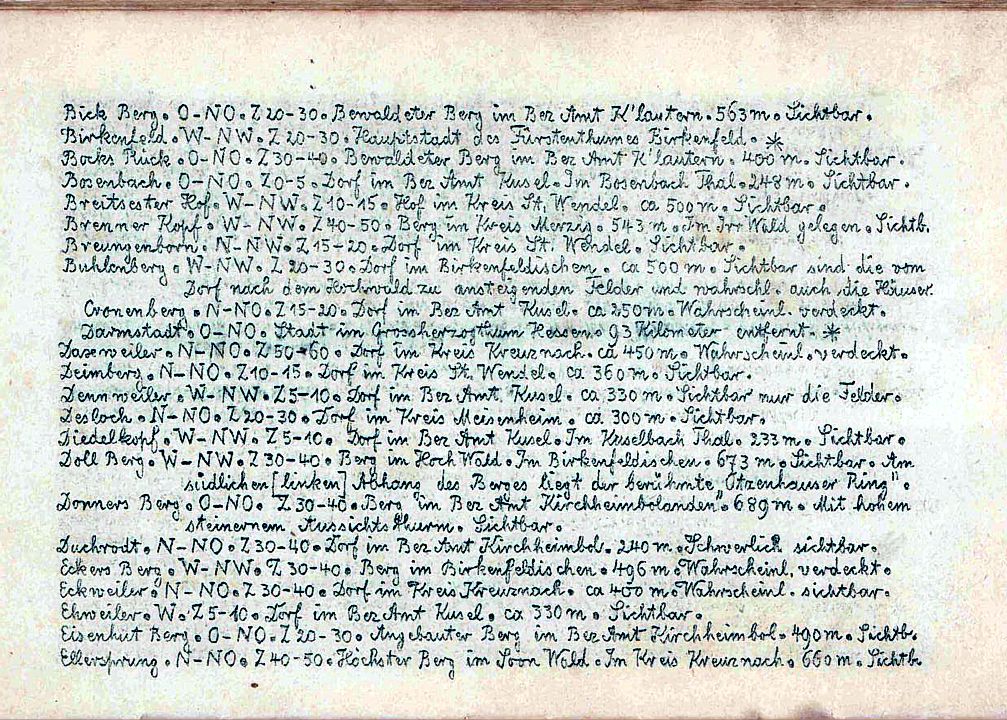 Bick Berg. O-NO. Z 20-30. Bewaldeter Berg im Bez Amt K'lautern. 563 m. Sichtbar.
Birkenfeld. W-NW. Z 20-30. Hauptstadt des Fürstenthumes Birkenfeld. *
Bocks Rück. O-NO. Z 30-40. Bewaldeter Berg im Bez Amt K'lautern. 400 m. Sichtbar.
Bosenbach. O-NO. Z 0-5. Dorf im Bez Amt Kusel. Im Bosenbach Thal. 248 m. Sichtbar.
Breitsester Hof. W-NW. Z 10-15. Hof im Kreis St. Wendel. ca 500 m. Sichtbar.
Brenner Kopf. W-NW. Z 40-50. Berg im Kreis Merzig. 543 m. Im Irr Wald gelegen. Sichtb.
Breungenborn. N-NW. Z 15-20. Dorf im Kreis St. Wendel. Sichtbar.
Buhlenberg. W-NW. Z 20-30. Dorf im Birkenfeldischen. ca 500 m. Sichtbar sind die vom
Dorf nach dem Hochwald zu ansteigenden Felder und wahrschl. auch die Häuser.
Cronenberg. N-NO. Z 15-20. Dorf im Bez Amt Kusel. ca 250 m. Wahrscheinl. verdeckt.
Darmstadt. O-NO. Stadt im Grossherzogthum Hessen. 93 Kilometer entfernt. *
Daxweiler. N-NO. Z 50-60. Dorf im Kreis Kreuznach. ca 450 m. Wahrscheinl. verdeckt.
Deimberg. N-NO. Z 10-15. Dorf im Kreis St. Wendel. ca 360 m. Sichtbar.
Dennweiler. W-NW. Z 5-10. Dorf im Bez Amt Kusel. ca 330 m. Sichtbar nur die Felder.
Desloch. N-NO. Z 20-30. Dorf im Kreis Meisenheim. ca 300 m. Sichtbar.
Diedelkopf. W-NW. Z 5-10. Dorf im Bez Amt Kusel. Im Kuselbach Thal. 233 m. Sichtbar.
Doll Berg. W-NW. Z 30-40. Berg im Hoch Wald. Im Birkenfeldischen. 673 m. Sichtbar. Am
südlichen [linken] Abhang des Berges liegt der berühmte "Otzenhauser Ring".
Donners Berg. O-NO. Z 30-40. Berg im Bez Amt Kirchheimbolanden. 689 m. Mit hohem
steinernem Aussichtsthurm. Sichtbar.
Duchrodt. N-NO. Z 30-40. Dorf im Bez Amt Kirchheimbol. 240 m. Schwerlich sichtbar.
Eckers Berg. W-NW. Z 30-40. Berg im Birkenfeldischen. 496 m. Wahrscheinl. verdeckt.
Eckweiler. N-NO. Z 30-40. Dorf im Kreis Kreuznach. ca 400 m. Wahrscheinl. sichtbar.
Ehweiler. W. Z 5-10. Dorf im Bez Amt Kusel. ca 330 m. Sichtbar.
Eisenhut Berg. O-NO. Z 20-30. Angebauter Berg im Bez Amt Kirchheimbol. 490 m. Sichtb.
Ellerspring. N-NO. Z 40-50. Höchster Berg im Soon Wald. Im Kreis Kreuznach. 660 m. Sichtb.